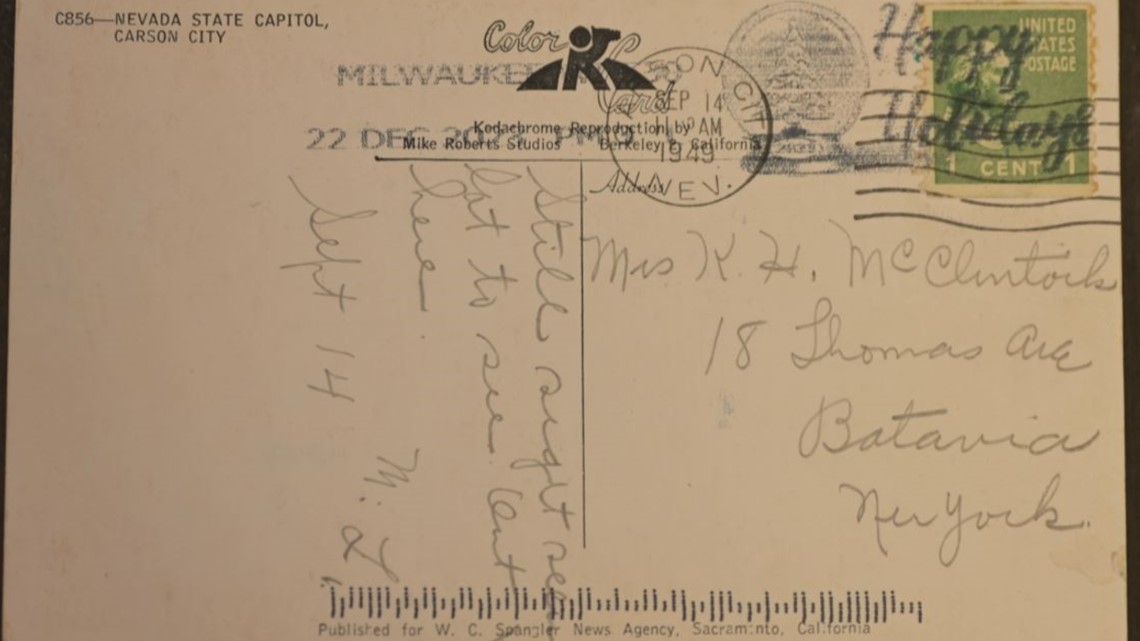 C856—NEVADA STATE CAPITOL,
CARSON CITY
Color
Card
MILWAUKEE
22 DEC PM
Kodachrome Reproduction by
Mike Roberts Studios Berkeley 2, California
Address
SON CITY
SEP 14
AM
1949
NEV.
Happy
Holidays
UNITED
STATES
POSTAGE
1 CENT 1
Still sight see
Lot to see out
here.
Sept 14 M.
Mrs K. H. McClintock
18 Thomas Ave
Batavia
New York.
Published for W. C. Spangler News Agency, Sacramento, California